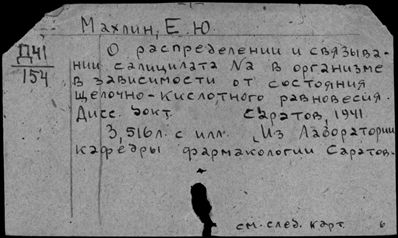 Махлин, Е. Ю.
Д41
154
О распределении и связыва-
нии салицилата Na в организме
в зависимости от состояния
щелочно-кислотного равновесия.
Дисс. докт. Саратов, 1941
3, 516 л. с илл. (Из Лаборатории
кафедры фармакологии Саратов.
см. след. карт. 6